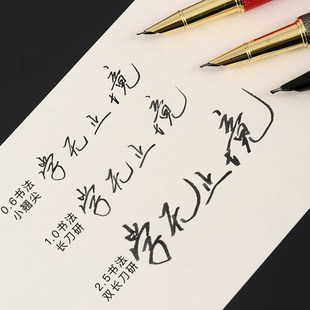 学无止境
0.6书法
小翘尖
学无止境
1.0书法
长刀研
学无止境
2.5书法
双长刀研